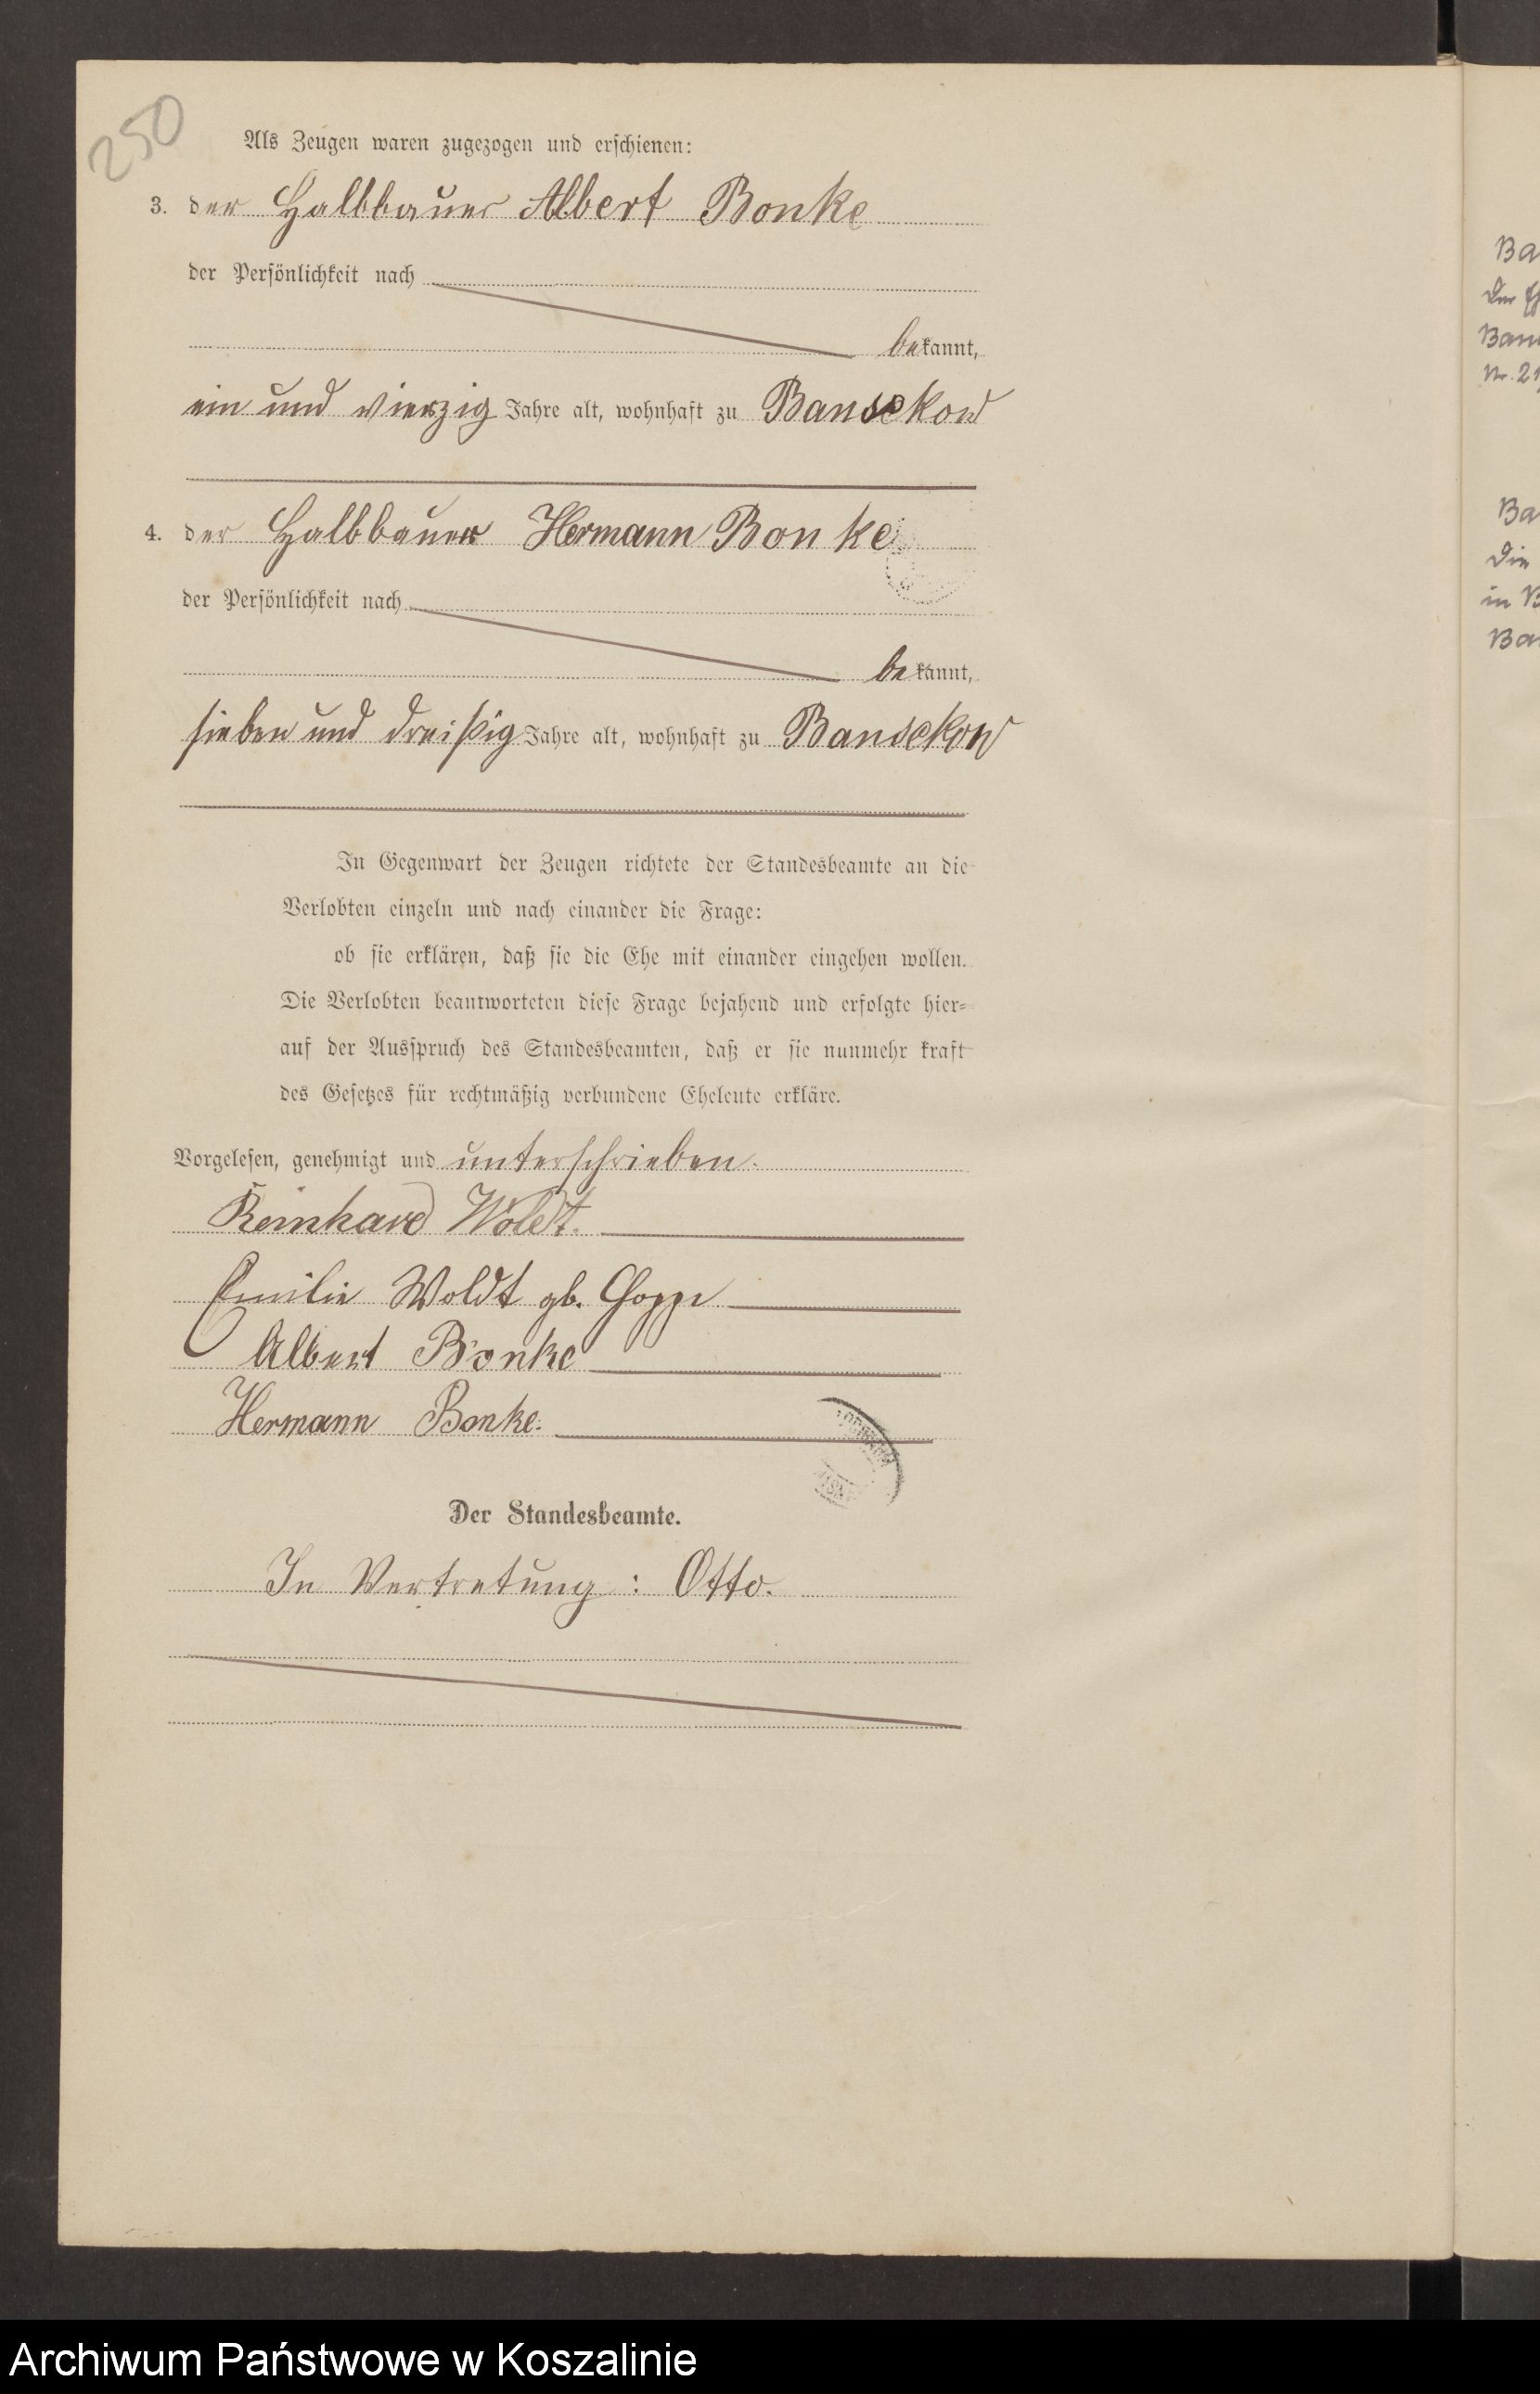 250
Als Zeugen waren zugezogen und erschienen:
3. der Halbbauer Albert Bonke
der Persönlichkeit nach
bekannt,
ein und vierzig Jahre alt, wohnhaft zu Bansekow
4. der Halbbauer Hermann Bonke
der Persönlichkeit nach
bekannt,
sieben und dreißig Jahre alt, wohnhaft zu Bansekow
In Gegenwart der Zeugen richtete der Standesbeamte an die
Verlobten einzeln und nach einander die Frage:
ob sie erklären, daß sie die Ehe mit einander eingehen wollen.
Die Verlobten beantworteten diese Frage bejahend und erfolgte hier-
auf der Ausspruch des Standesbeamten, daß er sie nunmehr kraft
des Gesetzes für rechtmäßig verbundene Eheleute erkläre.
Vorgelesen, genehmigt und unterschrieben.
Reinhard Woldt.
Emilie Woldt gb.
Albert Bonke
Hermann Bonke.
Der Standesbeamte.
In Vertretung: Otto.
Ba
Die
in B
Ba
Archiwum Państwowe w Koszalinie